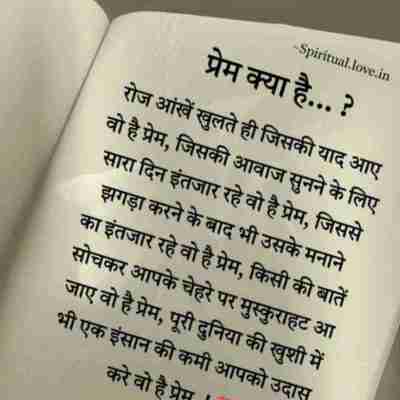 ~Spiritual.love.in
प्रेम क्या है... ?
रोज आंखें खुलते ही जिसकी याद आए
वो है प्रेम, जिसकी आवाज सुनने के लिए
सारा दिन इंतजार रहे वो है प्रेम, जिससे
झगड़ा करने के बाद भी उसके मनाने
का इंतजार रहे वो है प्रेम, किसी की बातें
सोचकर आपके चेहरे पर मुस्कुराहट आ
जाए वो है प्रेम, पूरी दुनिया की खुशी में
भी एक इंसान की कमी आपको उदास
करे वो है प्रेम..!